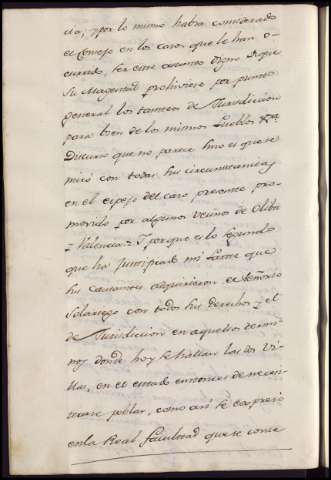 cio, y por lo mismo habra considerado
el Consejo en los casos que le han o-
currido, ser este asunto digno de que
Su Magestad prohiviese por punto
general los tanteos de Jurisdiccion
para bien de los mismos Pueblos
Discurso que no parece sino es que se
miró con todas sus circunstancias
en el espejo del caso presente, pro-
movido por algunos vecinos de Oliba
y Valencia: Y porque es lo segundo
que ha justificado mi parte que
sus causantes adquirieron el Señorio
Solariego con todos sus derechos y el
de Jurisdiccion en aquellos termi-
nos donde hoy se hallan las dos Vi-
llas, en el estado entonces de necesi-
tarse poblar, como asi se expresó
en la Real facultad que se conce